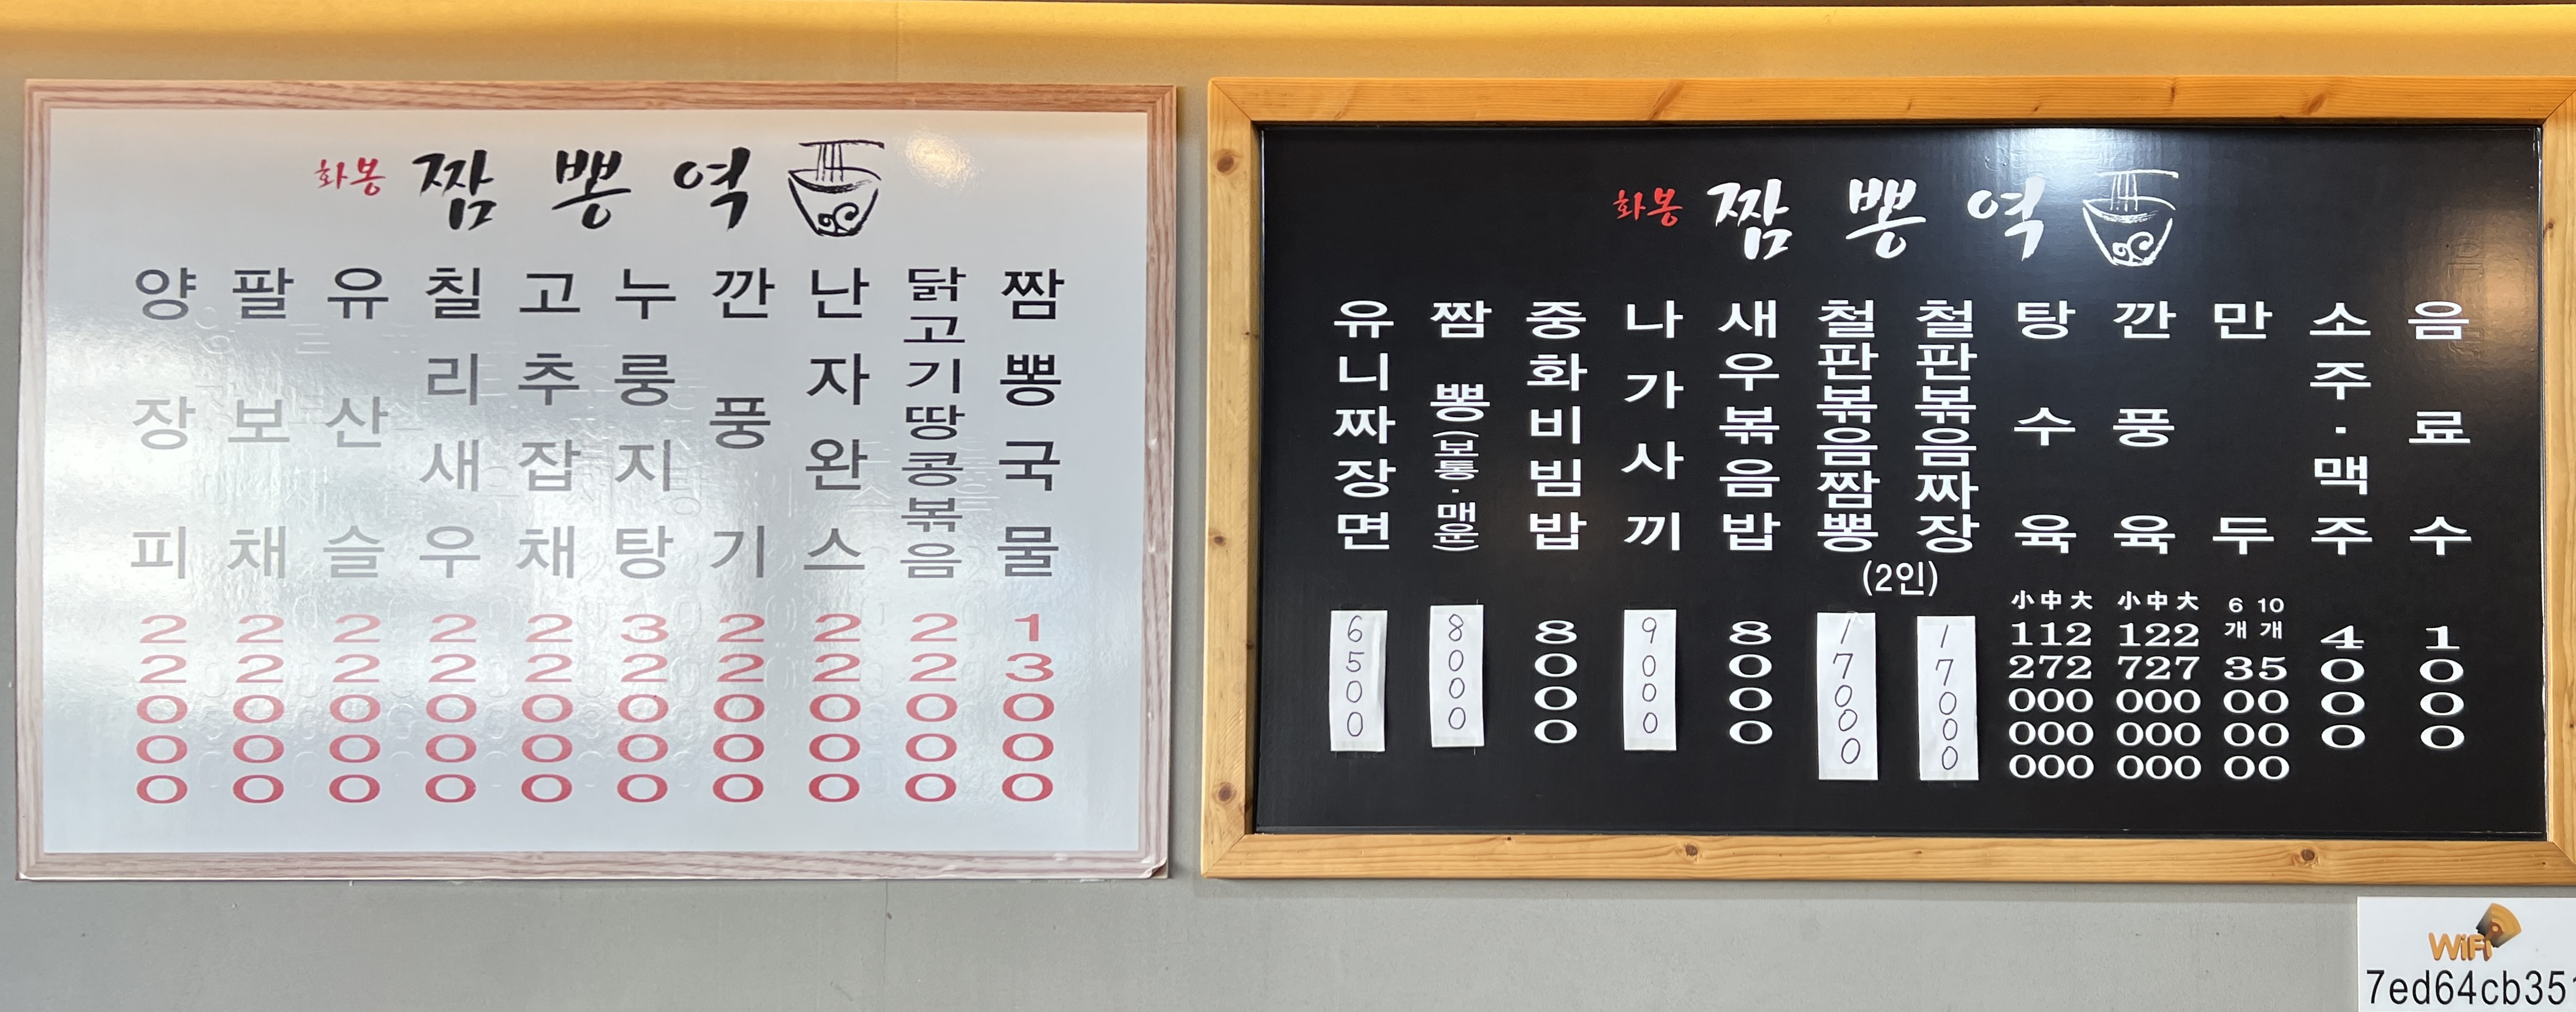 화봉 짬뽕역
양장피 22000
팔보채 22000
유산슬 22000
칠리새우 22000
고추잡채 22000
누룽지탕 32000
깐풍기 22000
난자완스 22000
닭고기땅콩볶음 22000
짬뽕국물 13000
화봉 짬뽕역
유니짜장면 6500
짬뽕(보통·매운) 8000
중화비빔밥 8000
나가사끼 9000
새우볶음밥 8000
철판볶음짬뽕 17000
철판볶음짜장 17000
(2인)
탕수육 小 12000 中 17000 大 22000
깐풍육 小 17000 中 22000 大 27000
만두 6개 3000 10개 5000
소주·맥주 4000
음료수 1000
WiFi
7ed64cb351